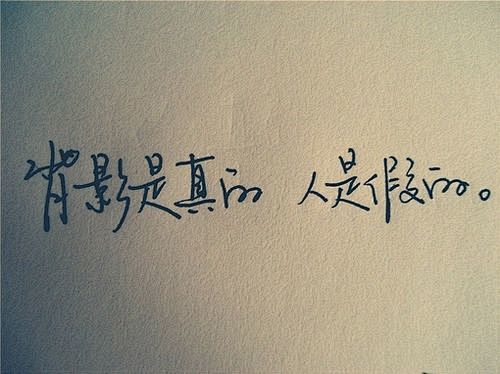 背影是真的 人是假的。